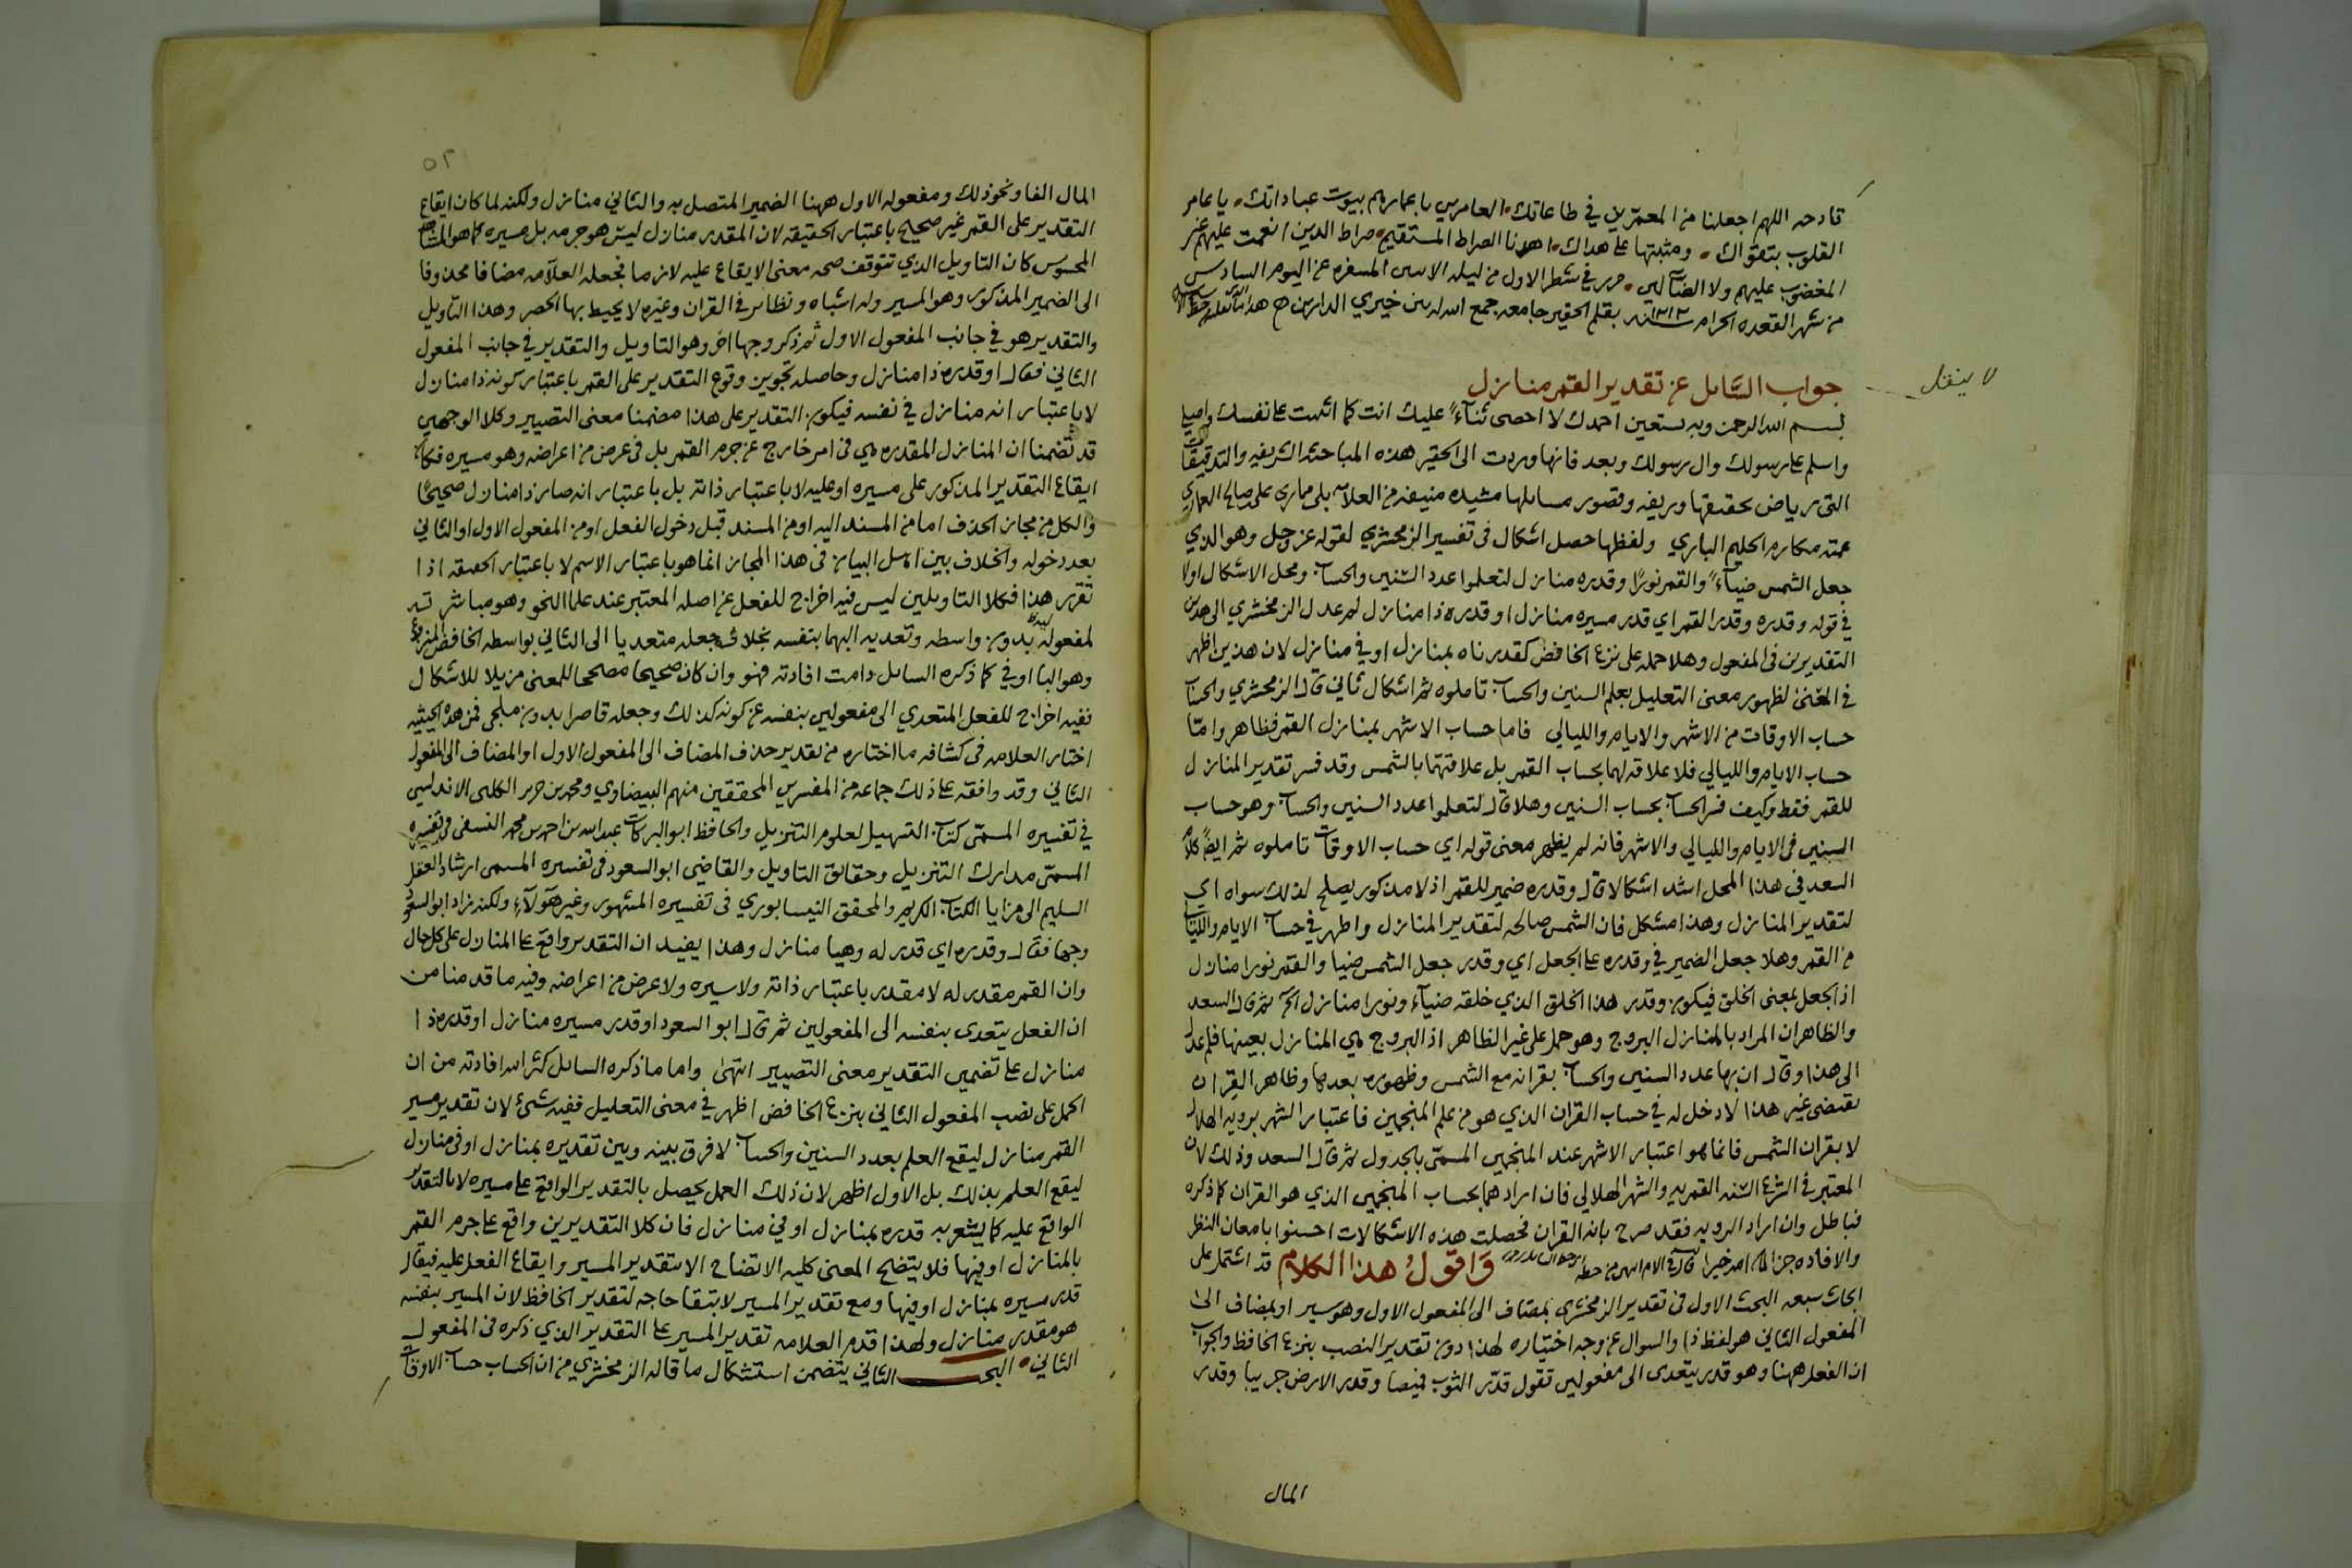 قادحه اللهم اجعلنا من المعمرين في طاعاتك العامرين باعمارهم بيوت عباداتك يا عامر
القلوب بتقواك ومثبتها على هداك اهدنا الصراط المستقيم صراط الذين انعمت عليهم غير
المغضوب عليهم ولا الضآلين حرر في شطر الاول من ليله الاثنين المسفره عن اليوم السادس
من شهر القعده الحرام سنة ١٢١٢ بقلم الحقير جامعه جمع الله له بين خيري الدارين
لا ينقل
جواب السَّايل عن تقدير القمر منازل
بسم الله الرحمن وبه نستعين احمدك لا احصى ثنآءً عليك انت كما اثنيت على نفسك واصلي
واسلم على رسولك وال رسولك وبعد فانها وردت الى الحقير هذه المباحثه الشريفه والتدقيقات
التي رياض تحقيقها وريفه وقصور مسايلها مشيده منيفه من العلامه على صالح العماري
عمته مكارم الحليم الباري ولفظها حصل اشكال في تفسير الزمخشري لقوله عز وجل وهو الذي
جعل الشمس ضيآءً والقمر نورًا وقدره منازل لتعلموا عدد السنين والحساب ومحل الاشكال اولا
في قوله وقدره وقدر القمر اي قدر مسيره منازل او قدره ذا منازل لم عدل الزمخشري الى هذين
التقديرين في المفعول وهلا حمله على نزع الخافض كقدرناه بمنازل او في منازل لان هذين اظهر
في المعنى لظهور معنى التعليل بعلم السنين والحساب تاملوه ثم اشكال ثاني قال الزمخشري والحساب
حساب الاوقات من الاشهر والايام والليالي فاما حساب الاشهر بمنازل القمر فظاهر وامّا
حساب الايام والليالي فلا علاقه لهما بحساب القمر بل علاقتهما بالشمس وقد فسر تقدير المنازل
للقمر فقط وكيف فسر الحساب بحساب السنين وهلا قال لتعلموا عدد السنين والحساب وهو حساب
السنين في الايام والليالي والاشهر فانه لم يظهر معنى قوله اي حساب الاوقات تاملوه ثم ايضًا كلام
السعد في هذا المحل اشد اشكالا قال وقدره ضمير للقمر اذ لا مذكور يصلح لذلك سواه اي
لتقدير المنازل وهذا مشكل فان الشمس صالحه لتقدير المنازل واظهر في حساب الايام والليالي
من القمر وهلا جعل الضمير في وقدره على الجعل اي وقدر جعل الشمس ضيا والقمر نورا منازل
اذ الجعل بمعنى الخلق فيكون وقدر هذا الخلق الذي خلقه ضيآء ونورا منازل الخ ثم قال السعد
والظاهر ان المراد بالمنازل البروج وهو حمل على غير الظاهر اذ البروج هي المنازل بعينها فلم عدل
الى هذا وقال ان بها عدد السنين والحساب بقرانه مع الشمس وظهوره بعدها وظاهر القران
يقتضي غير هذا لا دخل له في حساب القران الذي هو من علم المنجمين فاعتبار الشهر برويه الهلال
لا بقران الشمس فانما هو اعتبار الاشهر عند المنجمين المسمّى بالجدول ثم قال السعد وذلك لان
المعتبر في الشرع السّنه القمريه والشهر الهلالي فان اراد هما بحساب المنجمين الذي هو القران كما ذكره
فباطل وان اراد الرويه فقد صرح بانه القران فحصلت هذه الاشكالات احسنوا بامعان النظر
والافاده جزاكم الله خيرا وَاقولُ هذا الكلام قد اشتمل على
ابحاث سبعه البحث الاول في تقدير الزمخشري بمضاف الى المفعول الاول وهو سير او بمضاف الى
المفعول الثاني هو لفظ ذا والسوال عن وجه اختياره لهذا دون تقدير النصب بنزع الخافظ والجواب
ان الفعل ههنا وهو قدر يتعدى الى مفعولين تقول قدّر الثوب قميصا وقدر الارض جريبا وقدر
المال
٥٢
المال الفا ونحو ذلك ومفعوله الاول ههنا الضمير المتصل به والثاني منازل ولكنه لما كان ايقاع
التقدير على القمر غير صحيح باعتبار الحقيقه لان المقدر منازل ليس هو جرمه بل مسيره كما هو المشاهد
المحسوس كان التاويل الذي تتوقف صحه معنى الايقاع عليه لازما فجعله العلآمه مضافا محذوفا
الى الضمير المذكور وهو المسير وله اشباه ونظائر في القران وغيره لا يحيط بها الحصر وهذا التاويل
والتقدير هو في جانب المفعول الاول ثم ذكر وجها اخر وهو التاويل والتقدير في جانب المفعول
الثاني فقال او قدره ذا منازل وحاصله تجويز وقوع التقدير على القمر باعتبار كونه ذا منازل
لا باعتبار انه منازل في نفسه فيكون التقدير على هذا مضمنا معنى التصيير وكلا الوجهين
قد تضمنا ان المنازل المقدره هي في امر خارج عن جرم القمر بل في عرض من اعراضه وهو مسيره فكان
ايقاع التقدير المذكور على مسيره او عليه لا باعتبار ذاته بل باعتبار انه صار ذا منازل صحيحًا
والكل من مجاز الحذف اما من المسند اليه او من المسند قبل دخول الفعل او من المفعول الاول او الثاني
بعد دخوله والخلاف بين اهل البيان في هذا المجاز انما هو باعتبار الاسم لا باعتبار الحقيقه اذا
تقرر هذا فكلا التاويلين ليس فيه اخراج للفعل عن اصله المعتبر عند علما النحو وهو مباشرته
لمفعوليه بدون واسطه وتعديه اليهما بنفسه بخلاف جعله متعديا الى الثاني بواسطه الخافض المنزوع
وهو البا او في كما ذكره السايل دامت افادته فهو وان كان صحيحا مصلحا للمعنى مزيلا للاشكال
ففيه اخراج للفعل المتعدي الى مفعولين بنفسه عن كونه كذلك وجعله قاصرا بدون ملجي فمن هذه الحيثيه
اختار العلامه في كشافه ما اختاره من تقدير حذف المضاف الى المفعول الاول او المضاف الى المفعول
الثاني وقد وافقه على ذلك جماعه من المفسرين المحققين منهم البيضاوي ومحمد بن جزي الكلبي الاندلسي
في تفسيره المسمّى كتاب التسهيل لعلوم التنزيل والحافظ ابو البركات عبدالله بن احمد بن محمد النسفي في تفسيره
المسمّى مدارك التنزيل وحقائق التاويل والقاضي ابو السعود في تفسيره المسمى ارشاد العقل
السليم الى مزايا الكتاب الكريم والمحقق النيسابوري في تفسيره المشهور وغير هَوُلآءِ ولكنه زاد ابو السعود
وجها فقال وقدره اي قدر له وهيا منازل وهذا يفيد ان التقدير واقع على المنازل على كل حال
وان القمر مقدر له لا مقدر باعتبار ذاته ولا سيره ولا عرض من اعراضه وفيه ما قدمنا من
ان الفعل يتعدى بنفسه الى المفعولين ثم قال ابو السعود او قدر مسيره منازل او قدره ذا
منازل على تضمين التقدير معنى التصيير انتهى واما ما ذكره السايل كثر الله افادته من ان
الحمل على نصب المفعول الثاني بنزع الخافض اظهر في معنى التعليل ففيه شيء لان تقدير مسير
القمر منازل ليقع العلم بعدد السنين والحساب لا فرق بينه وبين تقديره بمنازل او في منازل
ليقع العلم بذلك بل الاول اظهر لان ذلك العمل يحصل بالتقدير الواقع على مسيره لا بالتقدير
الواقع عليه كما يشعر به قدره بمنازل او في منازل فان كلا التقديرين واقع على جرم القمر
بالمنازل او فيها فلا يتضح المعنى كليه الاتضاح الا بتقدير المسير وايقاع الفعل عليه فيقال
قدر مسيره بمنازل او فيها ومع تقدير المسير لا تبقا حاجه لتقدير الخافظ لان المسير بنفسه
هو مقدر منازل ولهذا قدم العلامه تقدير المسير على التقدير الذي ذكره في المفعول
الثاني البحث الثاني يتضمن استشكال ما قاله الزمخشري من ان الحساب حساب الاوقات